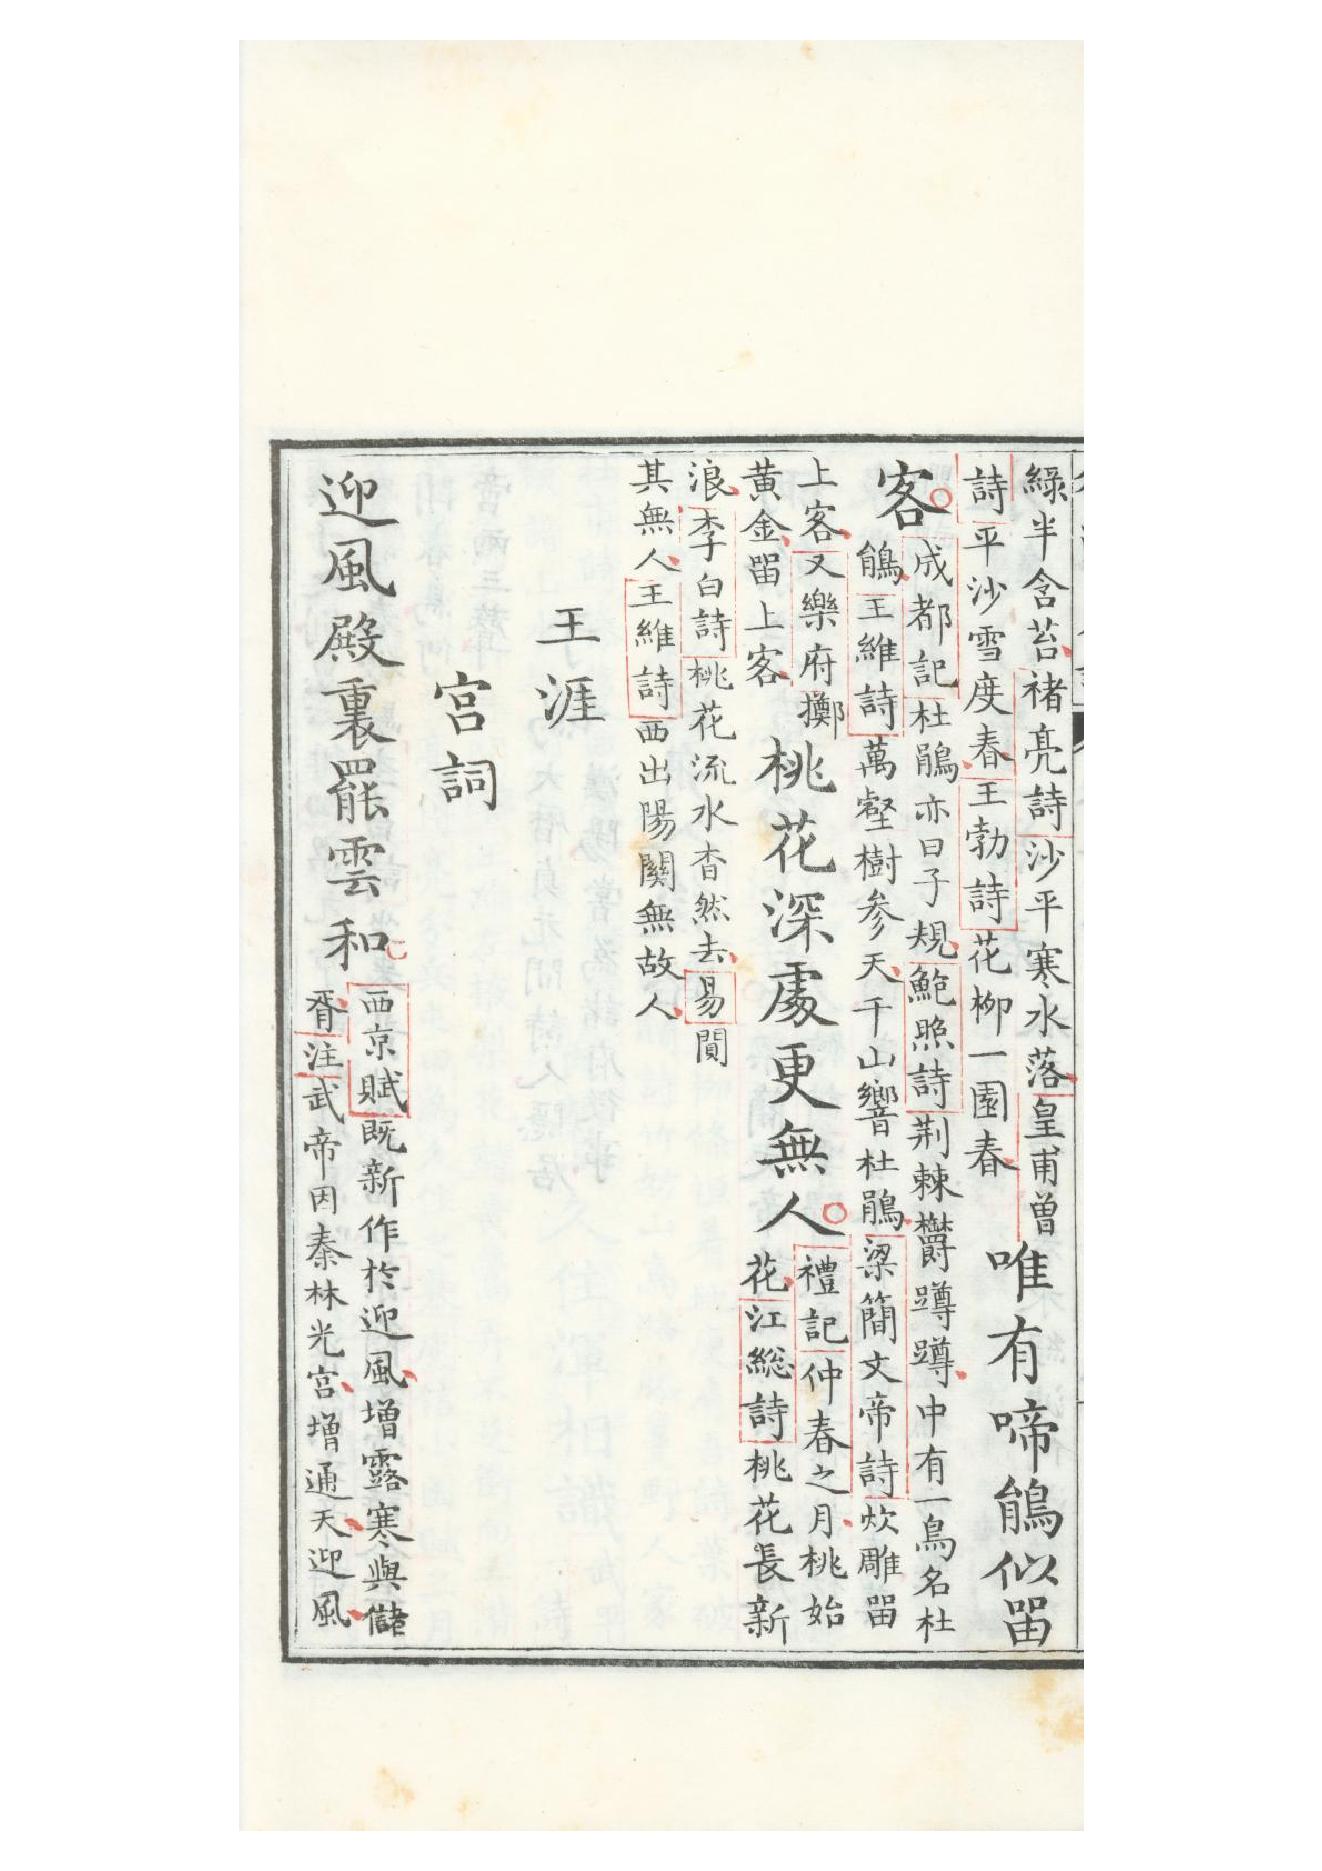 綠半含苔褚亮詩沙平寒水落皇甫曾
詩平沙雪度春王勃詩花柳一園春
唯有啼鵑似留
客
成都記杜鵑亦曰子規鮑照詩荆棘欝蹲蹲中有一鳥名杜
鵑王維詩萬壑樹参天千山響杜鵑梁簡文帝詩炊雕留
上客又樂府擲
黄金留上客
桃花深處更無人
禮記仲春之月桃始
花江総詩桃花長新
浪李白詩桃花流水杳然去易闃
其無人王維詩西出陽關無故人
王涯
宮詞
迎風殿裏罷雲和
西京賦既新作於迎風增露寒與儲
胥注武帝因秦林光宮增通天迎風